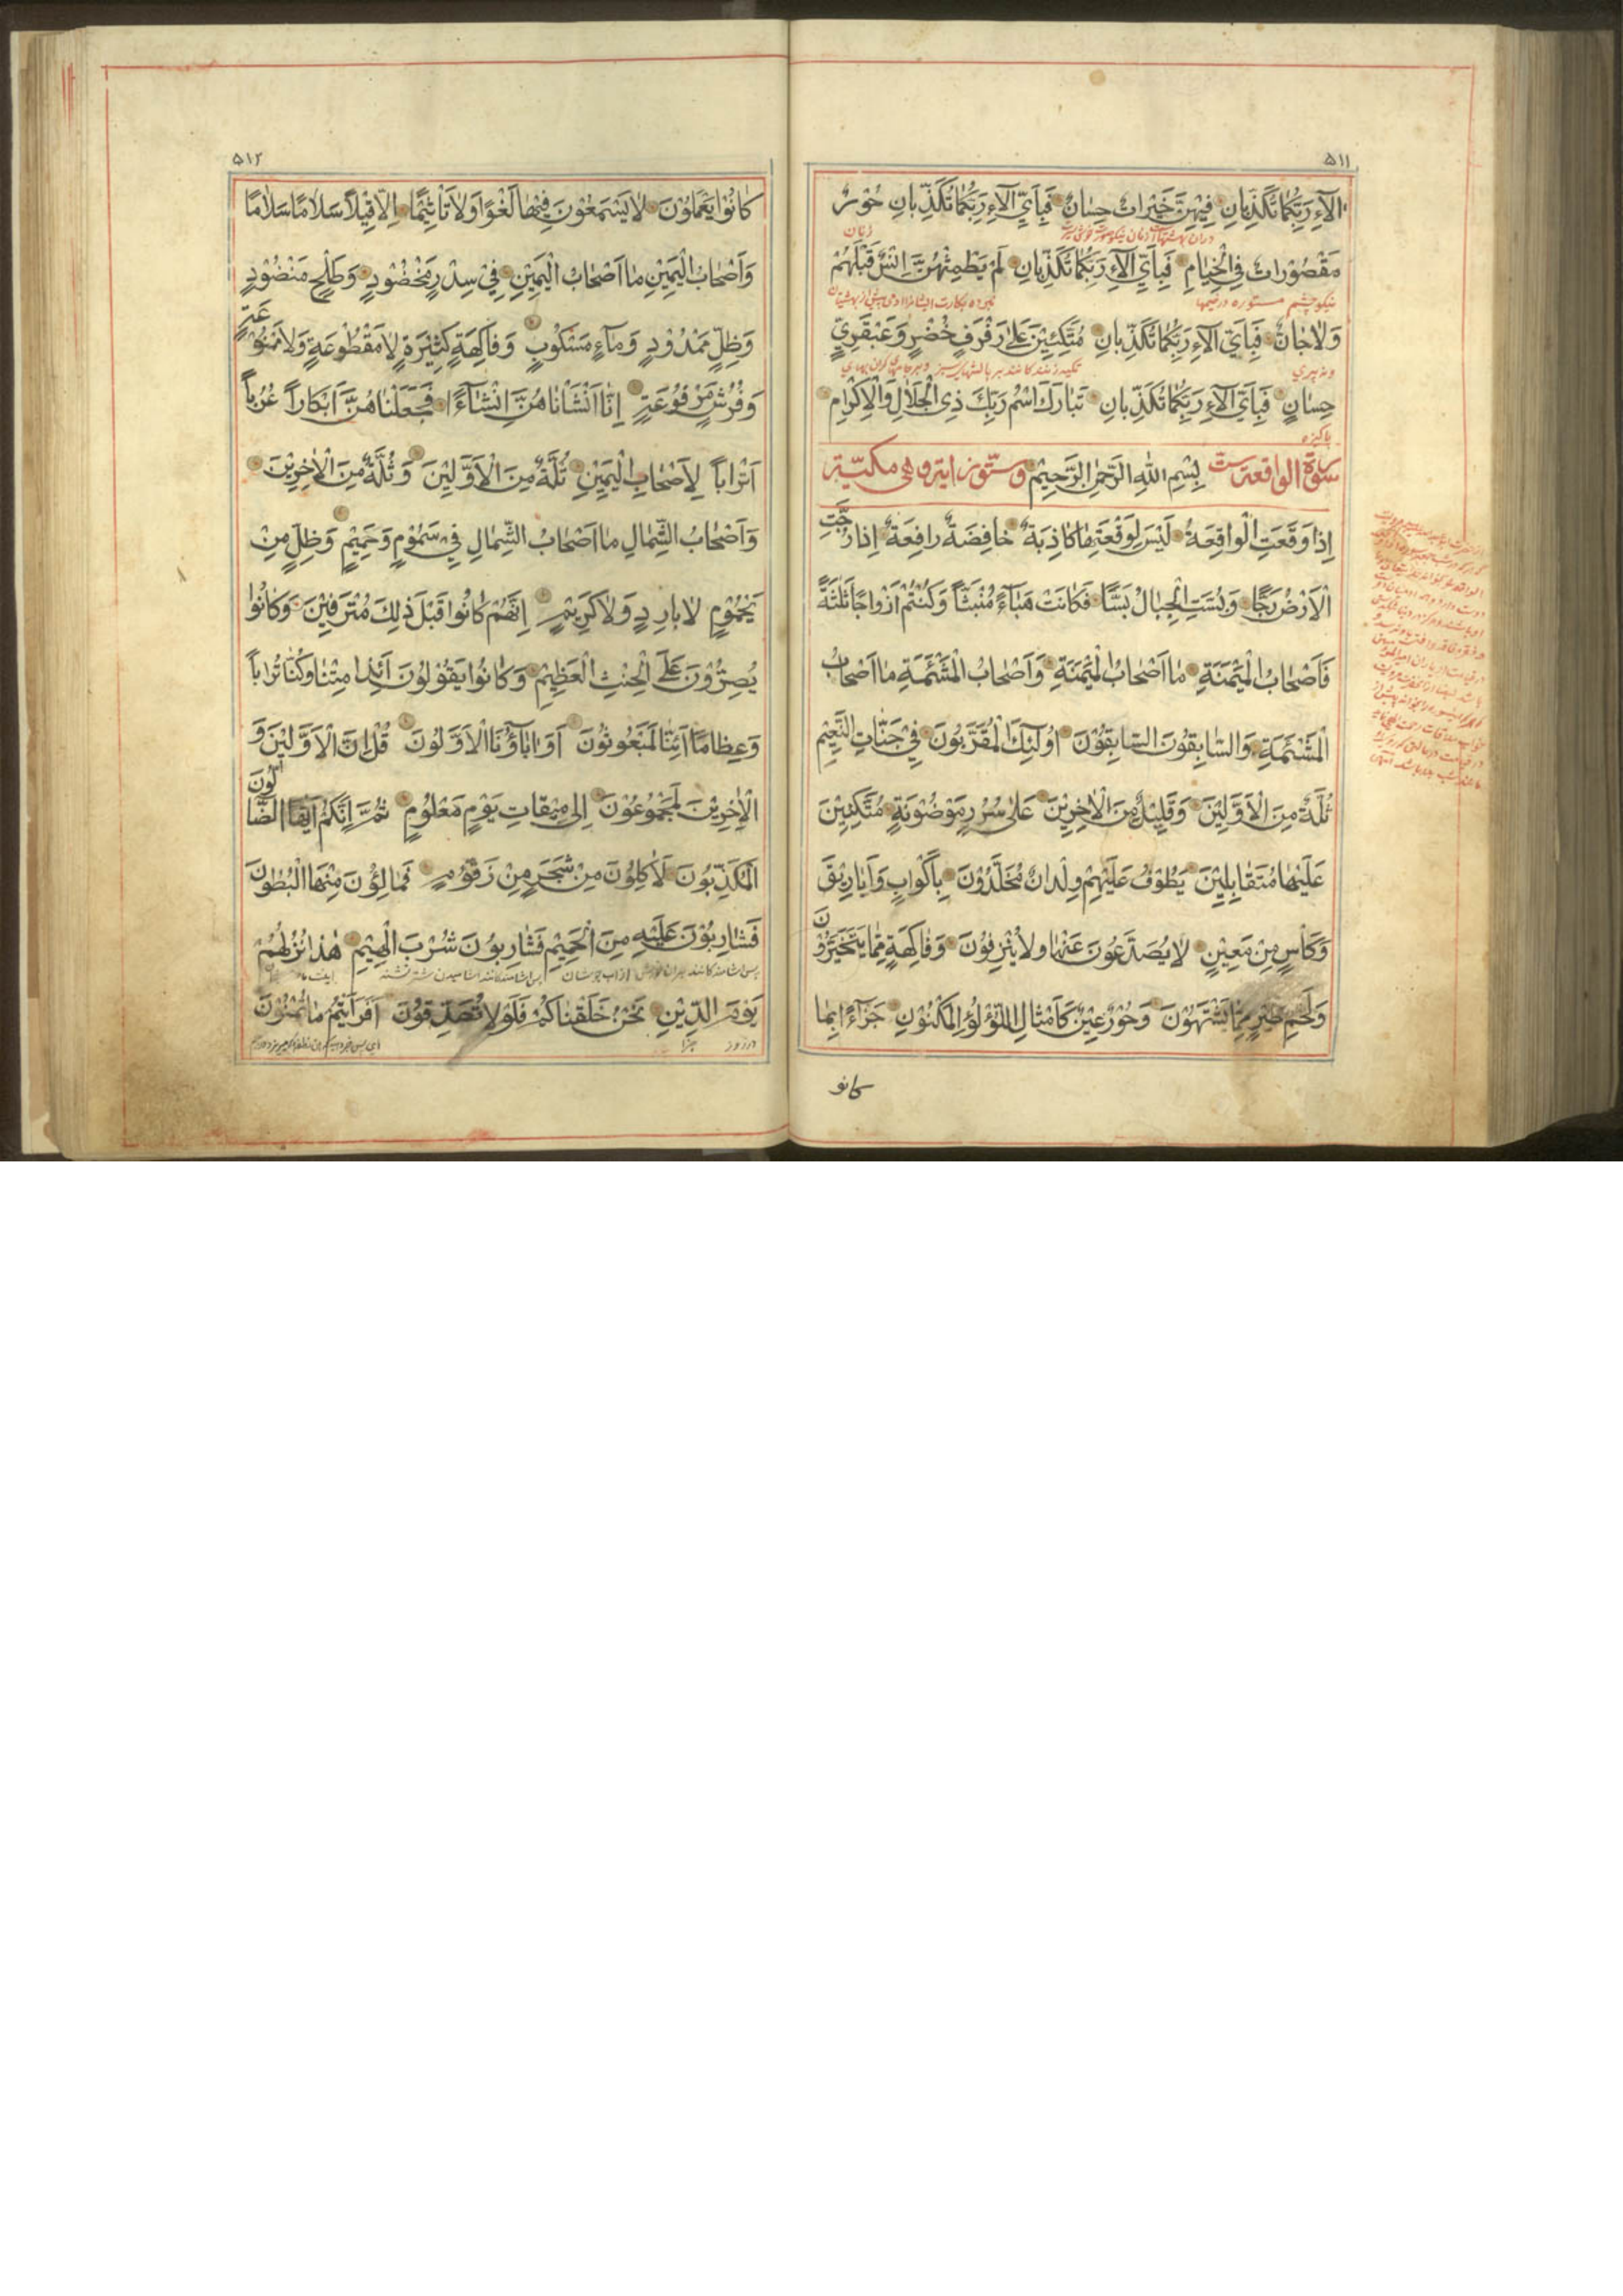 ۵۱۱
الآءِ رَبِّكُمَا تُكَذِّبانِ فِيهِنَّ خَيْراتٌ حِسانٌ فَبِأَيِّ الآءِ رَبِّكُمَا تُكَذِّبانِ حُورٌ
زنان
مَقْصُوْراتٌ فِي الْخِيٰامِ فَبِأَيِّ الآءِ رَبِّكُمَا تُكَذِّبانِ لَمْ يَطْمِثْهُنَّ اِنْسٌ قَبْلَهُمْ
نيكو چشم مستوره در خيمها
وَلاٰ جٰانٌّ فَبِأَيِّ الآءِ رَبِّكُمَا تُكَذِّبانِ مُتَّكِئِيْنَ عَلىٰ رَفْرَفٍ خُضْرٍ وَعَبْقَرِيٍّ
ونه پري
حِسانٍ فَبِأَيِّ الآءِ رَبِّكُمَا تُكَذِّبانِ تَبٰارَكَ اسْمُ رَبِّكَ ذِي الْجَلاٰلِ وَالْاِكْرٰامِ
پاكيزه
سورة الواقعة ست بِسْمِ اللهِ الرَّحْمٰنِ الرَّحِيْمِ وستّون اية وهي مكيّة
اِذا وَقَعَتِ الْواقِعَةُ لَيْسَ لِوَقْعَتِهٰا كاذِبَةٌ خافِضَةٌ رافِعَةٌ اِذا رُجَّتِ
الْاَرْضُ رَجًّا وَبُسَّتِ الْجِبٰالُ بَسًّا فَكٰانَتْ هَبٰآءً مُنْبَثًّا وَكُنْتُمْ اَزْواجًا ثَلٰثَةً
فَاَصْحٰابُ الْمَيْمَنَةِ ما اَصْحٰابُ الْمَيْمَنَةِ وَاَصْحٰابُ الْمَشْئَمَةِ ما اَصْحٰابُ
الْمَشْئَمَةِ وَالسّٰابِقُونَ السّٰابِقُوْنَ اُولٰئِكَ الْمُقَرَّبُونَ فِيْ جَنّٰاتِ النَّعِيْمِ
ثُلَّةٌ مِنَ الْاَوَّلِيْنَ وَقَلِيْلٌ مِنَ الْاٰخِرِيْنَ عَلىٰ سُرُرٍ مَوْضُوْنَةٍ مُتَّكِئِيْنَ
عَلَيْهٰا مُتَقٰابِلِيْنَ يَطُوْفُ عَلَيْهِمْ وِلْدانٌ مُخَلَّدُوْنَ بِاَكْوابٍ وَاَبارِيْقَ
وَكَأْسٍ مِنْ مَعِيْنٍ لا يُصَدَّعُونَ عَنْهٰا ولاٰ يُنْزِفُوْنَ وَفٰاكِهَةٍ مِمّٰا يَتَخَيَّرُوْنَ
وَلَحْمِ طَيْرٍ مِمّٰا يَشْتَهُوْنَ وَحُوْرٌ عِيْنٌ كَاَمْثٰالِ اللُّؤْلُؤِ الْمَكْنُوْنِ جَزٰآءً بِمٰا
كانو
۵۱۲
كٰانُوْا يَعْمَلُوْنَ لاٰ يَسْمَعُوْنَ فِيْهٰا لَغْوًا وَلاٰ تَأْثِيْمًا اِلاّٰ قِيْلاً سَلاٰمًا سَلاٰمًا
وَاَصْحٰابُ الْيَمِيْنِ ما اَصْحٰابُ الْيَمِيْنِ فِيْ سِدْرٍ مَخْضُوْدٍ وَطَلْحٍ مَنْضُوْدٍ
وَظِلٍّ مَمْدُوْدٍ وَمٰآءٍ مَسْكُوْبٍ وَفٰاكِهَةٍ كَثِيْرَةٍ لاٰ مَقْطُوْعَةٍ وَلاٰ مَمْنُوْعَةٍ
وَفُرُشٍ مَرْفُوْعَةٍ اِنّٰا اَنْشَأْنٰاهُنَّ اِنْشٰآءً فَجَعَلْنٰاهُنَّ اَبْكٰاراً عُرُباً
اَتْراباً لِاَصْحٰابِ الْيَمِيْنِ ثُلَّةٌ مِنَ الْاَوَّلِيْنَ وَثُلَّةٌ مِنَ الْاٰخِرِيْنَ
وَاَصْحٰابُ الشِّمٰالِ ما اَصْحٰابُ الشِّمٰالِ فِيْ سَمُوْمٍ وَحَمِيْمٍ وَظِلٍّ مِنْ
يَحْمُوْمٍ لاٰ بارِدٍ وَلاٰ كَرِيْمٍ اِنَّهُمْ كٰانُوْا قَبْلَ ذٰلِكَ مُتْرَفِيْنَ وَكٰانُوْا
يُصِرُّوْنَ عَلَى الْحِنْثِ الْعَظِيْمِ وَكٰانُوْا يَقُوْلُوْنَ اَئِذا مِتْنٰا وَكُنّٰا تُراباً
وَعِظٰامًا اَئِنّٰا لَمَبْعُوثُوْنَ اَوَ اٰبٰآؤُنَا الْاَوَّلُوْنَ قُلْ اِنَّ الْاَوَّلِيْنَ وَ
الْاٰخِرِيْنَ لَمَجْمُوْعُوْنَ اِلىٰ مِيْقٰاتِ يَوْمٍ مَعْلُوْمٍ ثُمَّ اِنَّكُمْ اَيُّهَا الضّٰالُّوْنَ
الْمُكَذِّبُوْنَ لَاٰكِلُوْنَ مِنْ شَجَرٍ مِنْ زَقُّوْمٍ فَمٰالِؤُنَ مِنْهَا الْبُطُوْنَ
فَشٰارِبُوْنَ عَلَيْهِ مِنَ الْحَمِيْمِ فَشٰارِبُوْنَ شُرْبَ الْهِيْمِ هٰذا نُزُلُهُمْ
يَوْمَ الدِّيْنِ نَحْنُ خَلَقْنٰاكُمْ فَلَوْلاٰ تُصَدِّقُوْنَ اَفَرَاَيْتُمْ ما تُمْنُوْنَ
در روز جزا